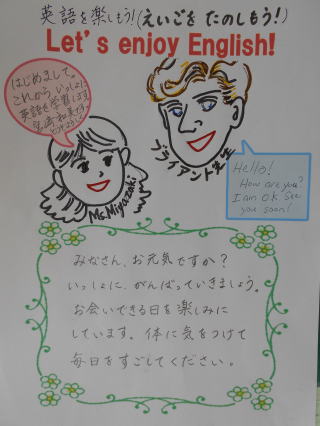 英語を楽しもう!(えいごを たのしもう!)
Let's enjoy English!
はじめまして。
これから、いっしょに
英語を学習します
宮崎 和美です
ブライアント先生
Ms. Miyazaki
Hello!
How are you?
I am OK See
you soon!
みなさん、お元気ですか?
いっしょに、がんばっていきましょう。
お会いできる日を楽しみに
しています。体に気をつけて
毎日をすごしてください。